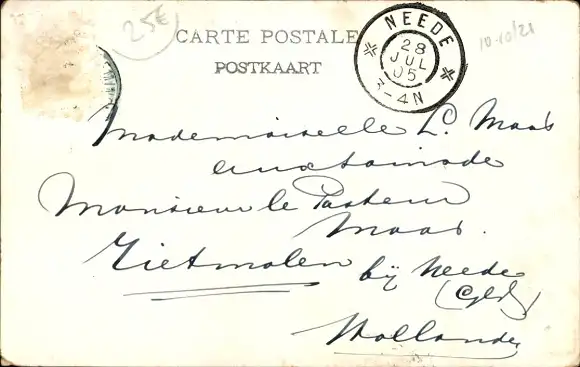 25€
CARTE POSTALE
POSTKAART
NEEDE
28
JUL
05
3-4N
10-10/21
Mademoiselle L. Maas
Monsieur le Pasteur
Maas.
Rietmolen bij Neede
(Gld)
Hollande